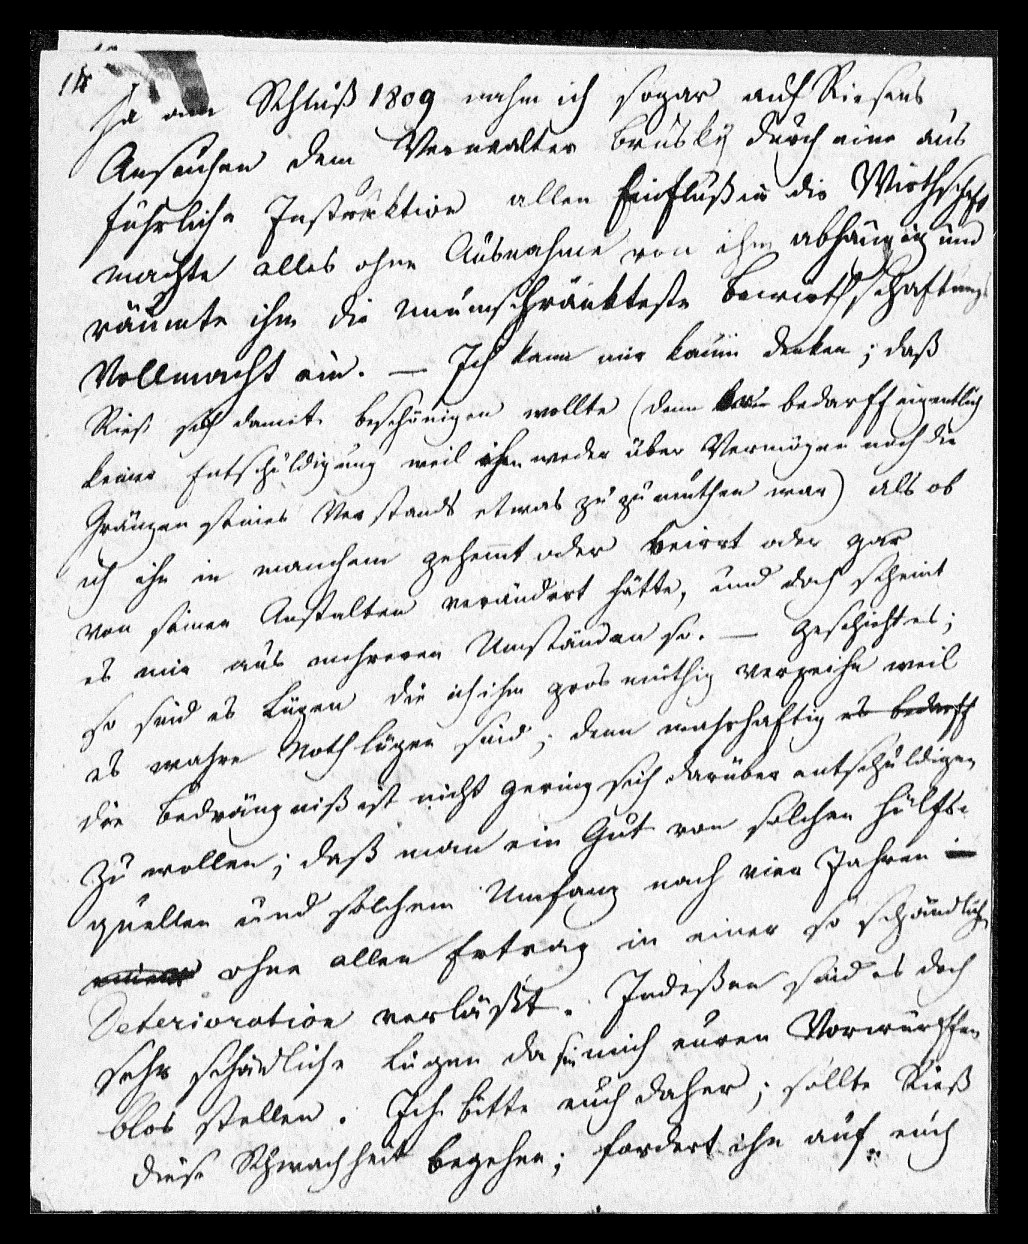 14
Ja am Schluß 1809 nahm ich sogar auf Riesens
Ansuchen dem Verwalter Brusky durch eine aus
führliche Instruktion allen Einfluß in die Wirthschaft
machte alles ohne Ausnahme von ihm abhängig und
räumte ihm die unumschränkteste bewirthschaftungs
Vollmacht ein. — Ich kann mir kaum denken; daß
Ries sich damit beschönigen wollte (denn bedarff eigentlich
keiner Entschuldigung weil ihm weder über Vermögen noch die
Gränzen seines Verstands etwas zu zu muthen war) als ob
ich ihn in manchem gehemt oder beirrt oder gar
von seinen Anstalten verändert hätte, und doch scheint
es mir aus mehreren Umständen so. — geschieht es;
so sind es Lügen die ich ihm gros müthig verzeihe weil
es wahre Nothlügen sind; denn wahrhaftig es bedarff
die bedrängniß ist nicht gering sich darüber entschuldigen
zu wollen; daß man ein Gut von solchen Hülfs-
quellen und solchem Umfang nach vier Jahren in
einem ohne allen Ertrag in einer so schändlichen
Deterioration verläßt. Indeßen sind es doch
sehr schädliche Lügen da sie mich euren Vorwürffen
blos stellen. Ich bitte euch daher; sollte Rieß
diese Schwachheit begehen; fordert ihn auf euch